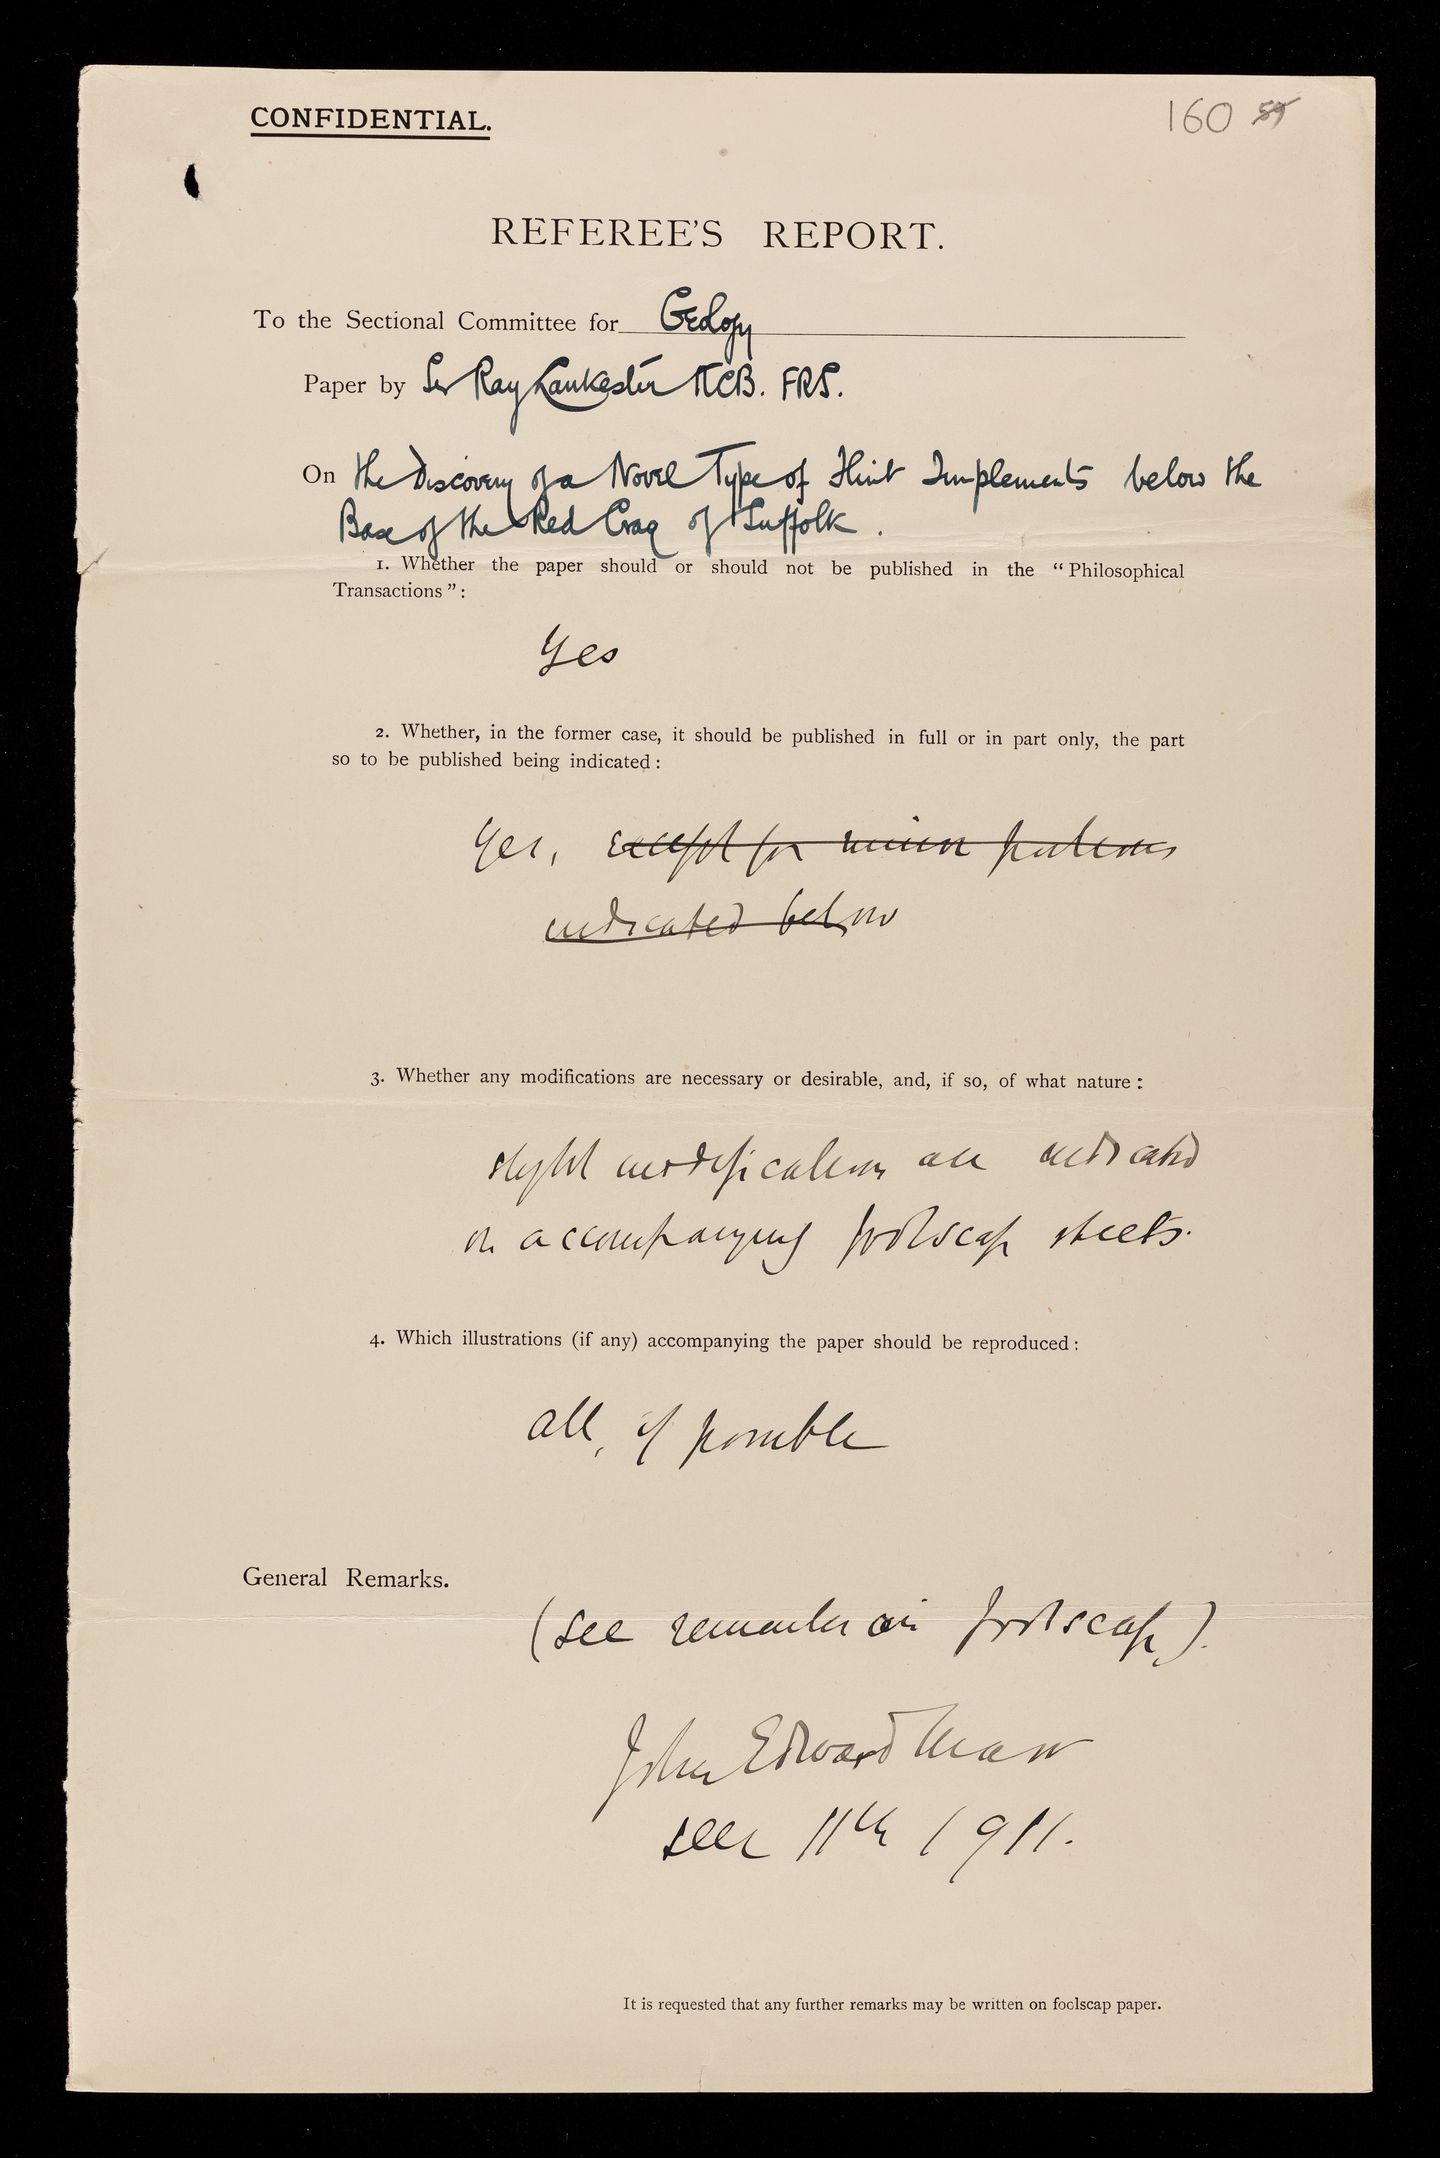 CONFIDENTIAL.
160 59
REFEREE'S REPORT.
To the Sectional Committee for Geology
Paper by Sir Ray Lankester KCB. FRS.
On the Discovery of a Novel Type of Flint Implements below the
Base of the Red Crag of Suffolk.
1. Whether the paper should or should not be published in the "Philosophical
Transactions":
Yes
2. Whether, in the former case, it should be published in full or in part only, the part
so to be published being indicated:
Yes, except for minor portions
indicated below
3. Whether any modifications are necessary or desirable, and, if so, of what nature:
slight modifications are indicated
on accompanying foolscap sheets.
4. Which illustrations (if any) accompanying the paper should be reproduced:
all, if possible
General Remarks.
(see remarks on foolscap).
John Edward Marr
Dec 11th 1911.
It is requested that any further remarks may be written on foolscap paper.